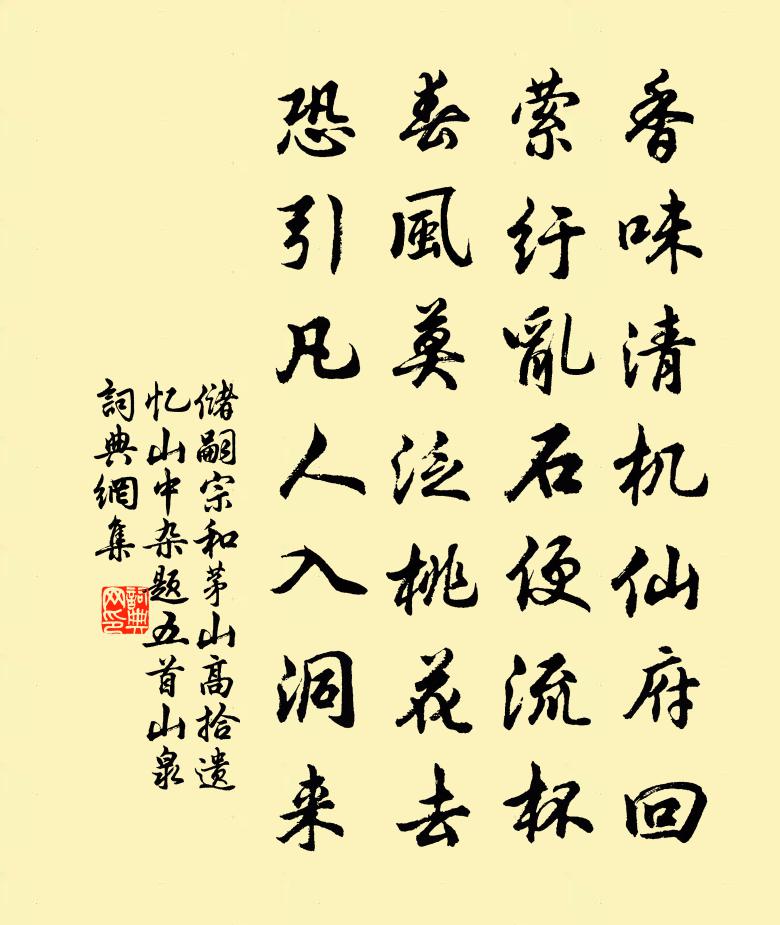 香味清机仙府回
萦纡亂石便流杯
春風莫泛桃花去
恐引凡人入洞来
储嗣宗和茅山高拾遗
忆山中杂题五首山泉
詞典網集
詞典
网印